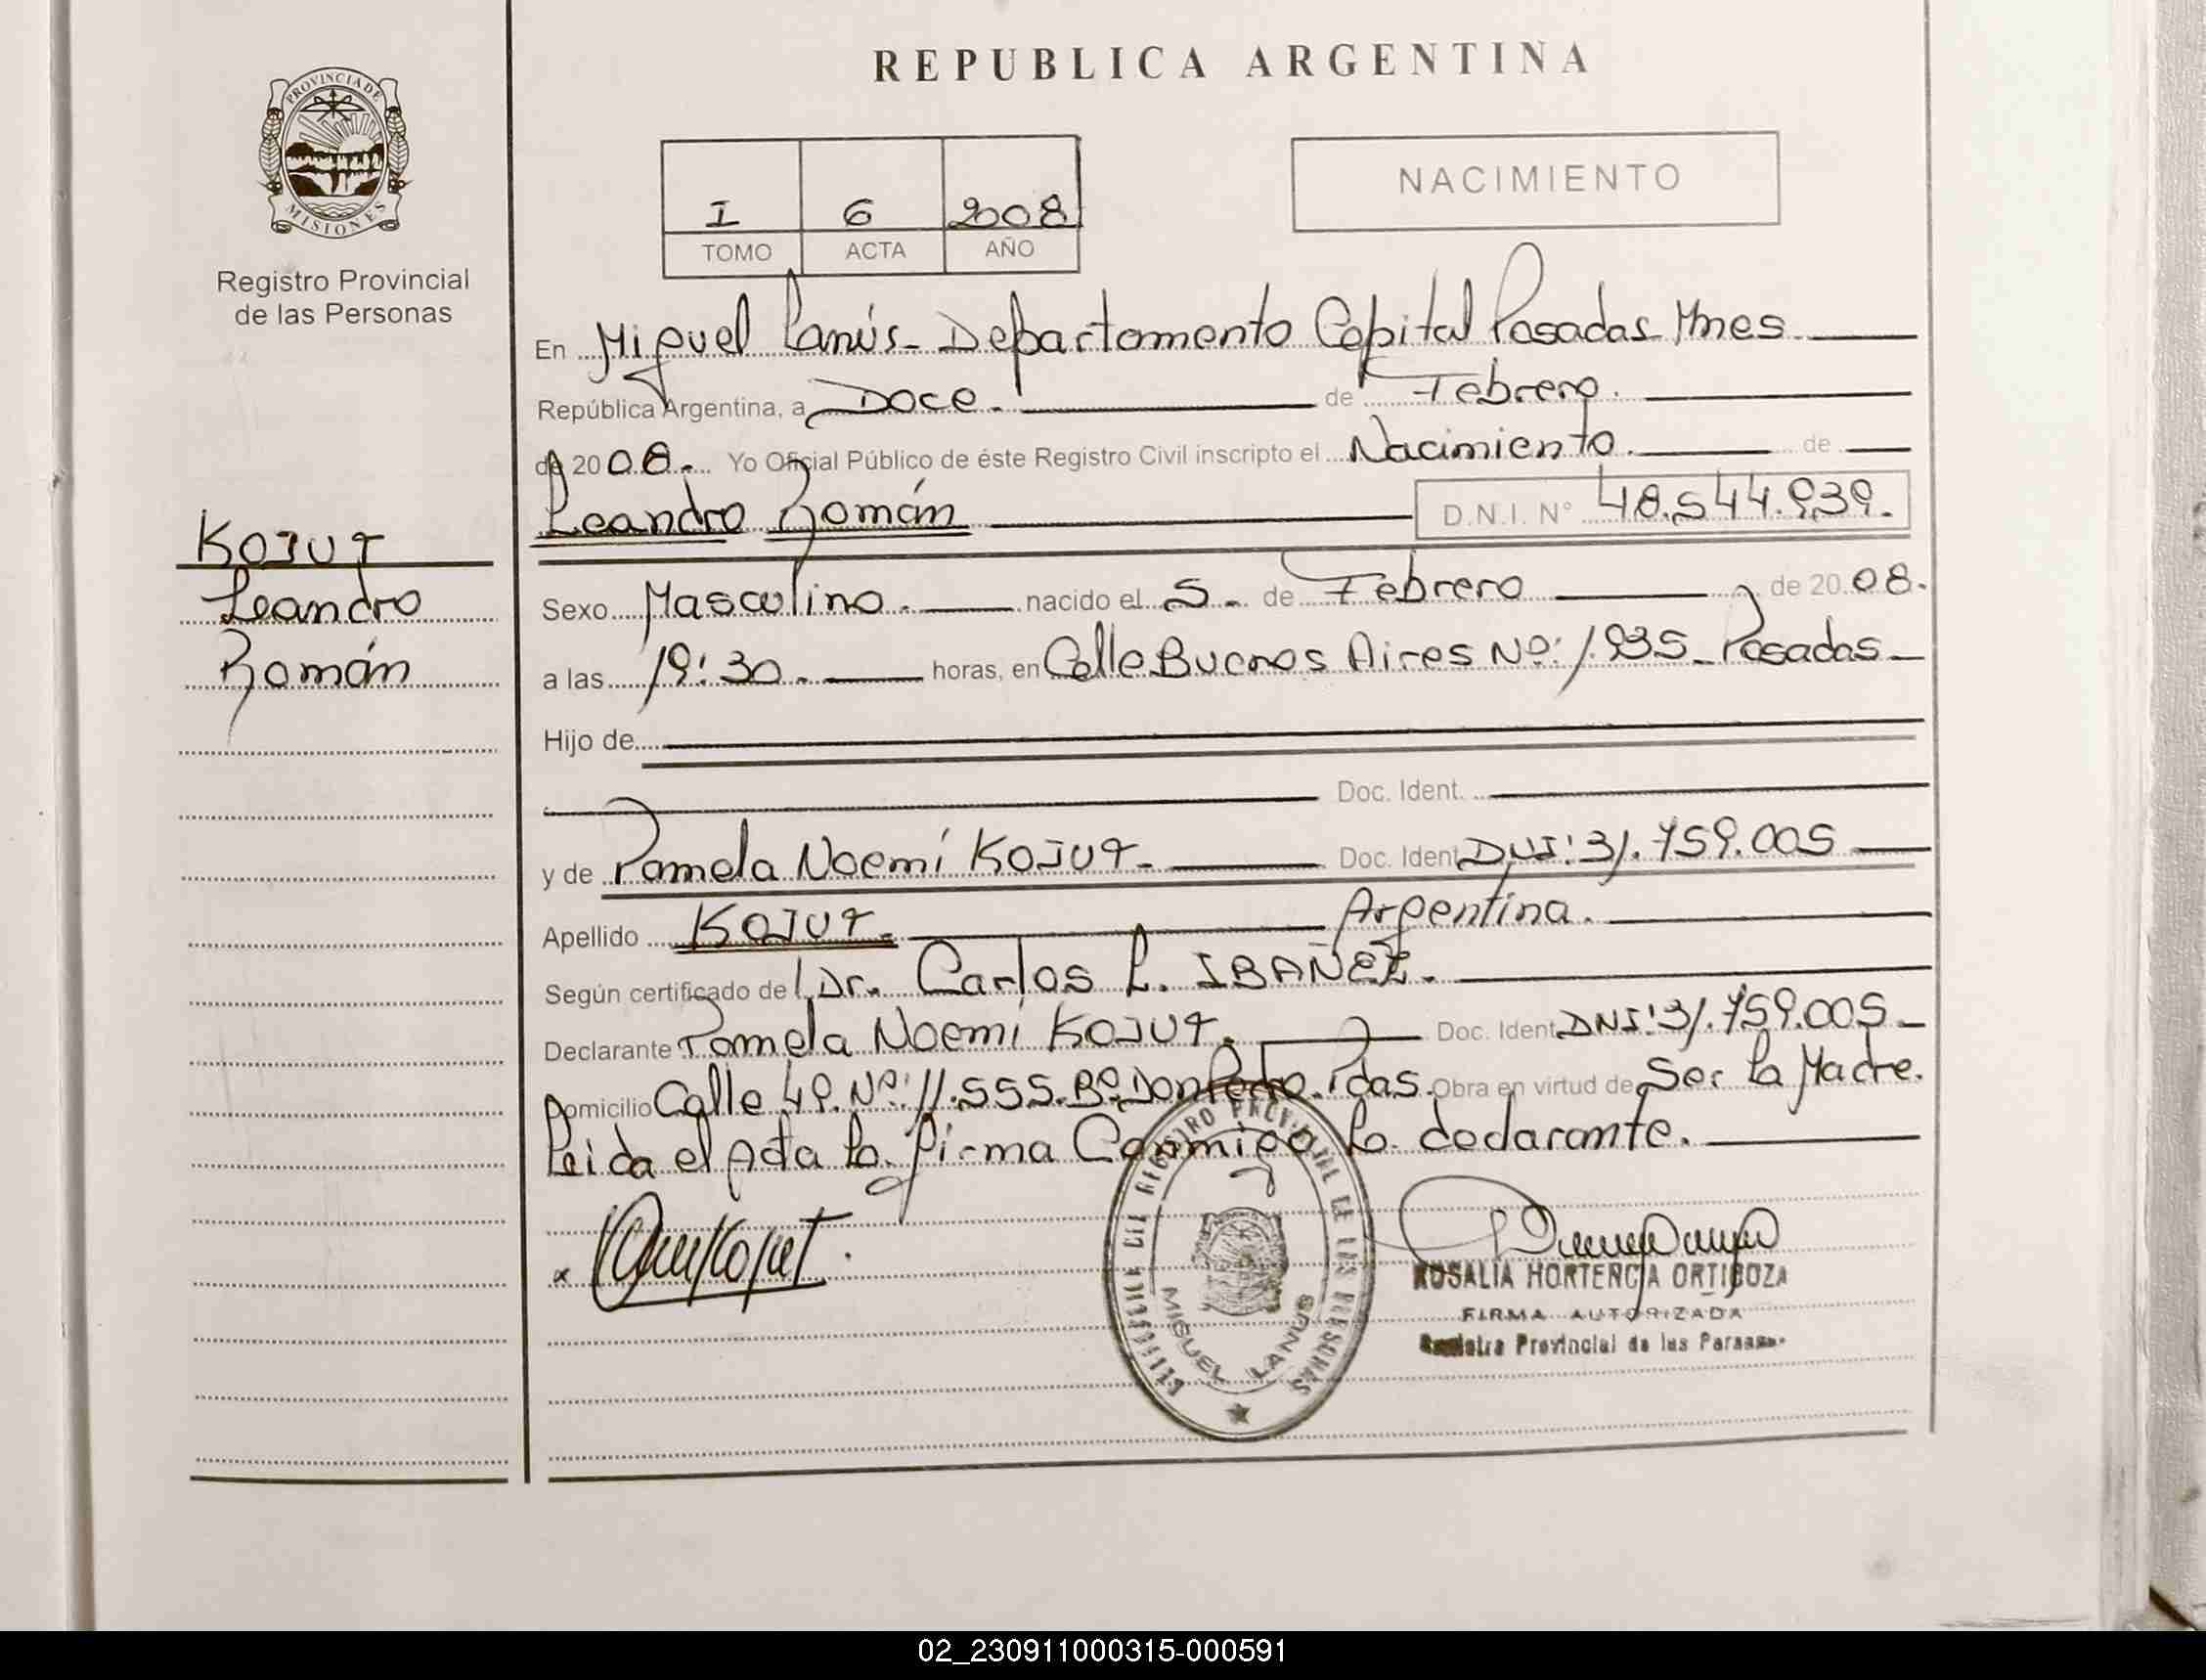 REPUBLICA ARGENTINA
PROVINCIA DE MISIONES
Registro Provincial
de las Personas
NACIMIENTO
I 6 2008
TOMO ACTA AÑO
En Miguel Lanús - Departamento Capital Posadas Mnes
República Argentina, a Doce. de Febrero.
de 2008. Yo Oficial Público de éste Registro Civil inscripto el Nacimiento. de
Leandro Román D.N.I. N° 48.544.939.
KOJUT
Leandro
Román
Sexo Masculino. nacido el 5. de Febrero de 2008.
a las 19:30. horas, en Calle Buenos Aires Nº: 1.935 - Posadas
Hijo de
Doc. Ident.
y de Pamela Noemí KOJUT. Doc. Ident DNI: 31.759.005
Apellido KOJUT. Argentina.
Según certificado del Dr. Carlos L. IBAÑEZ.
Declarante Pamela Noemí KOJUT. Doc. Ident DNI: 31.759.005
Domicilio Calle 49. Nº: 11.555. Bº. Don Pedro. Pdas. Obra en virtud de Ser la Madre.
Leida el Acta la firma Conmigo la declarante.
x
REGISTRO PROVINCIAL DE LAS PERSONAS
MIGUEL LANUS
ROSALIA HORTENCIA ORTIGOZA
FIRMA AUTORIZADA
Registro Provincial de las Personas
02_230911000315-000591